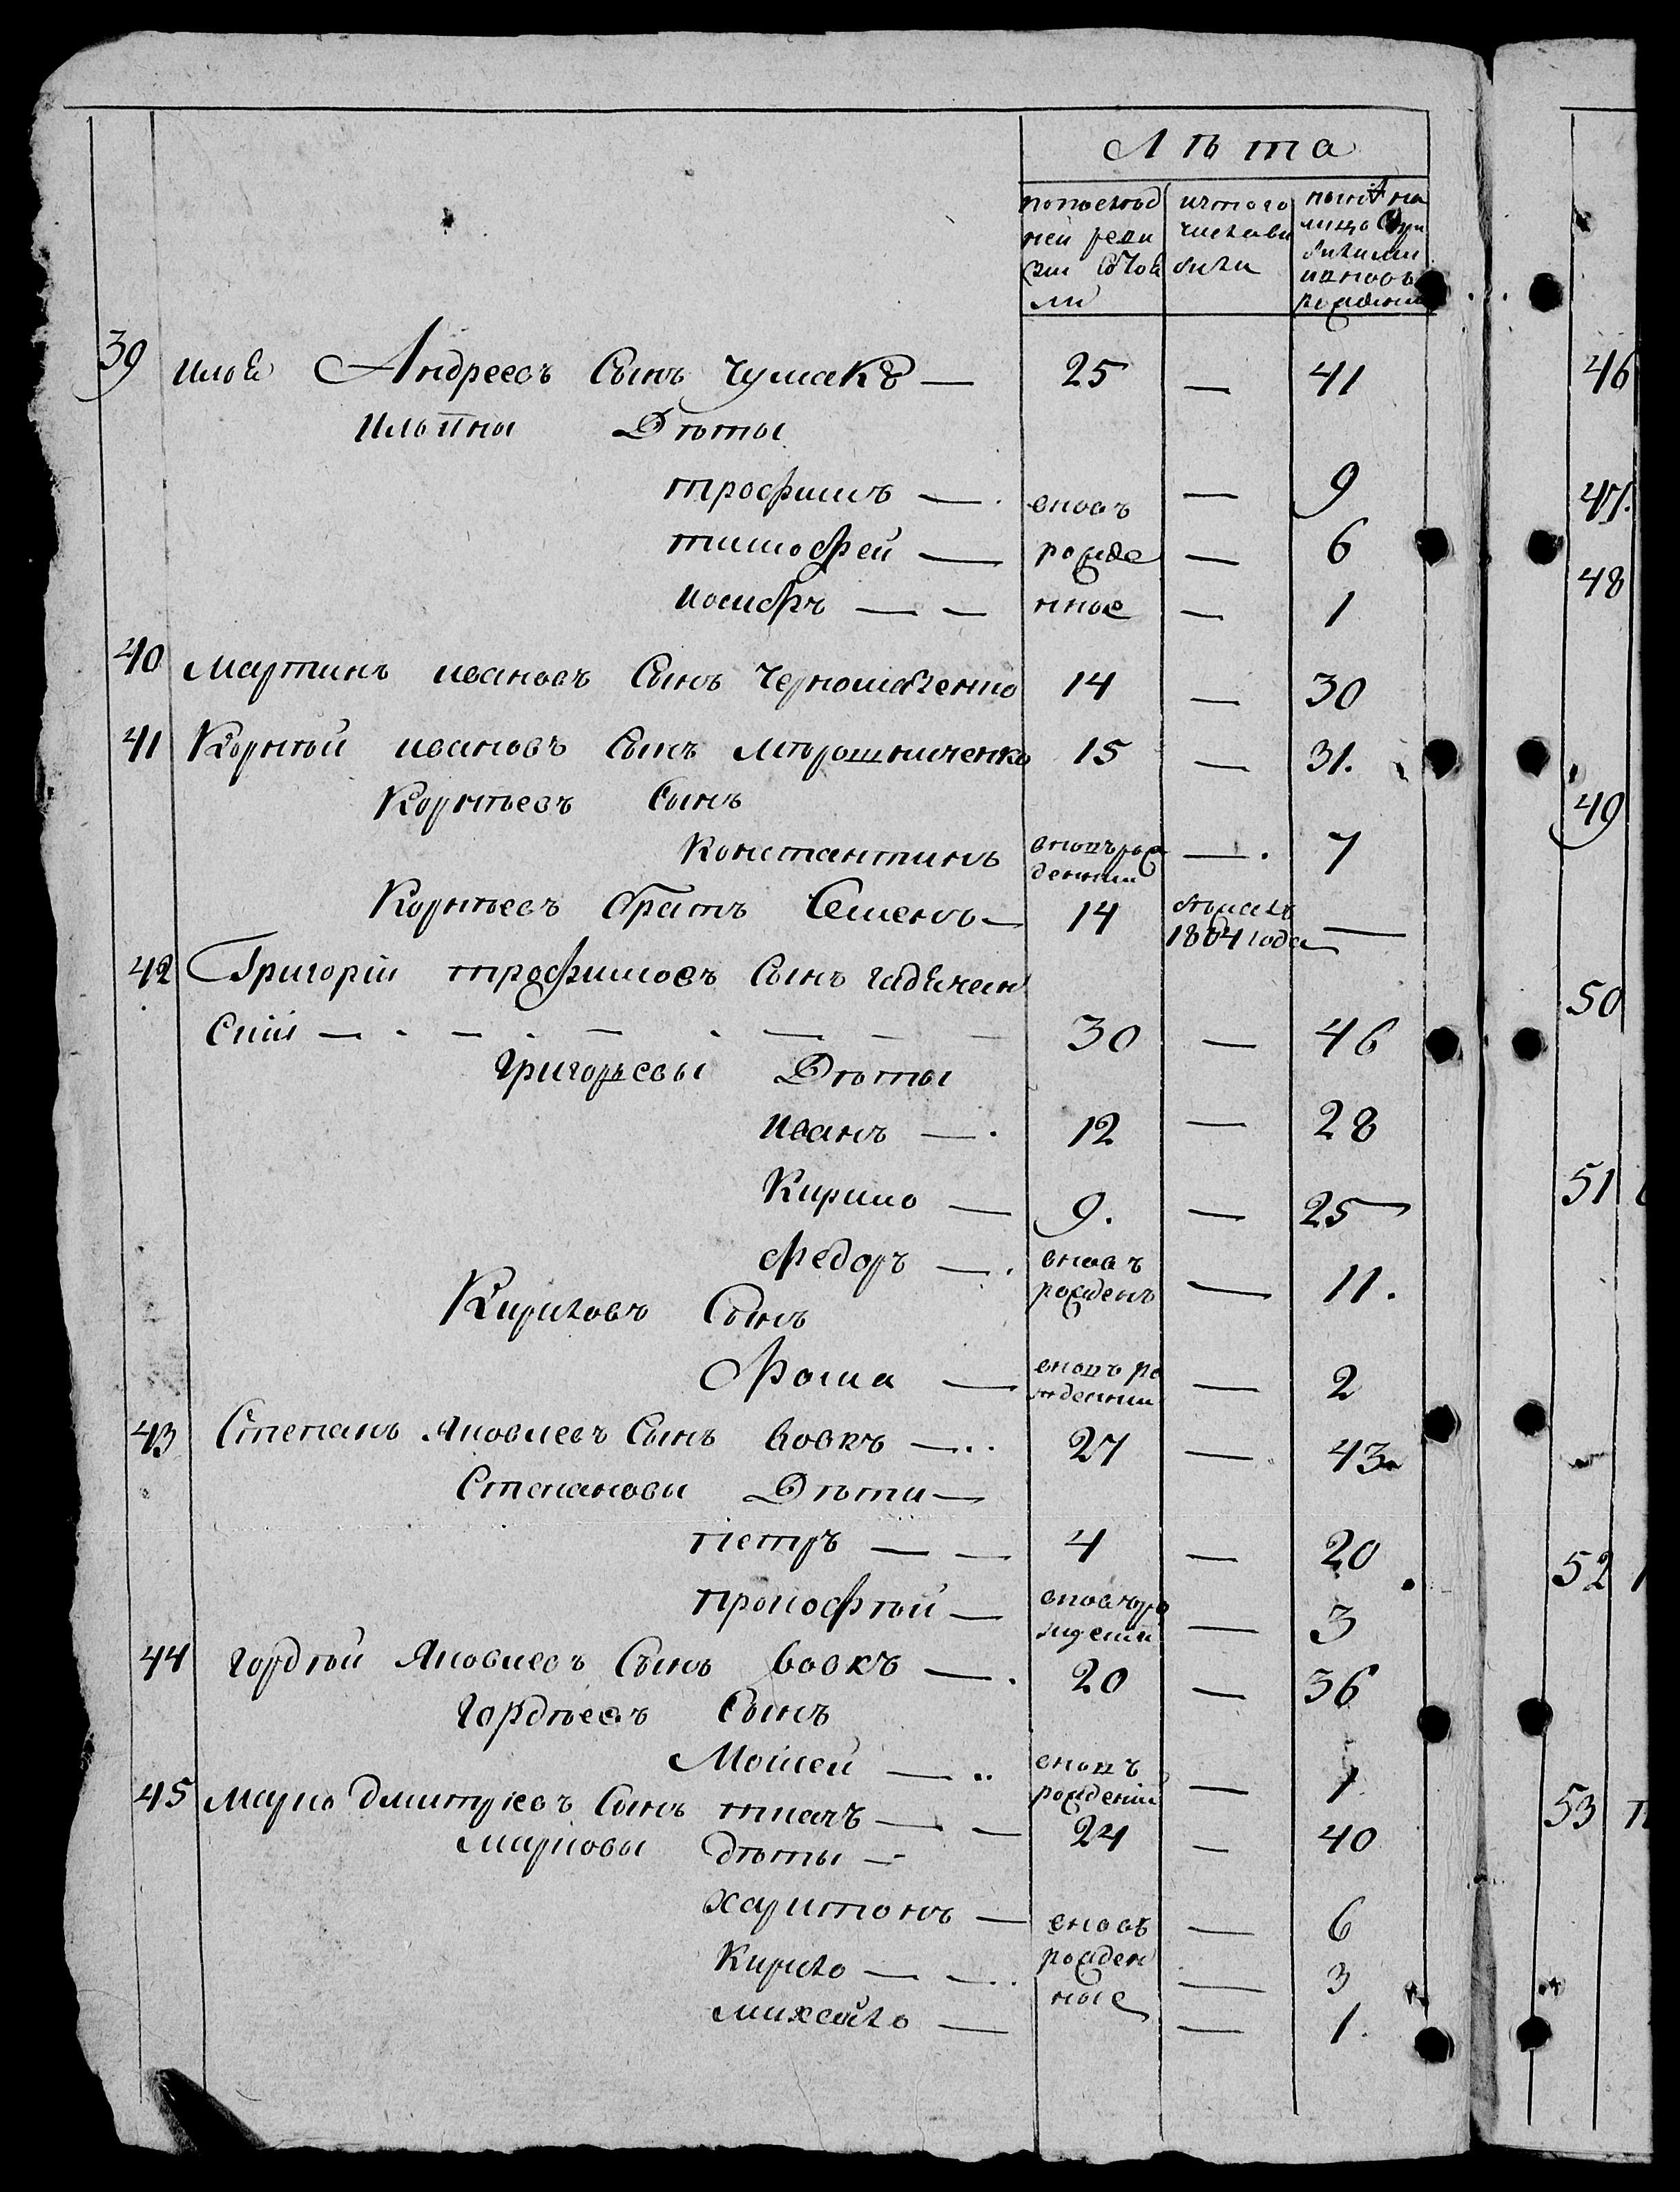 Лѣта
попослѣд изтого понынѣ на
ней реви числавы лицо съпри
зіи были были были
изновъ
рожденны
39 илья Андреевъ Сынъ Чумакъ — 25 — 41
Ильины Дѣты
трофимъ — вновь — 9
тимофей — рожде — 6
иосифъ — — нные — 1
40 мартинъ ивановъ Сынъ Черномаченко 14 — 30
41 Корнѣй ивановъ Сынъ Мѣрошниченко 15 — 31.
Корнѣевъ Сынъ
Константинъ вновърож — 7
денний
Корнѣевъ братъ Семенъ — 14 вбѣгахъ —
1804 года
42 Григорій трофимовъ Сынъ гадячан
скій — — — — — 30 — 46
Григорьевы Дѣты
иванъ — 12 — 28
Кирило — 9. — 25
федоръ — вновъ
рожденъ — 11.
Кириловъ Сынъ
Фома — вновъ ро
жденний — 2
43 Степанъ Яковлевъ Сынъ вовкъ — 27 — 43
Степановы Дѣти —
петръ — — 4 — 20
прокофѣй — вновъро
жденій — 3
44 гордѣй Яковлевъ Сынъ вовкъ — 20 — 36
гордѣевъ Сынъ
Мойсей — вновъ
рожденій — 1
45 марко дмитріевъ Сынъ ткачъ — — 24 — 40
марковы дѣты —
харитонъ — вновъ — 6
Кирило — — рожден — 3
михайло — ные — 1.
46
47.
48
49
50
51
52
53